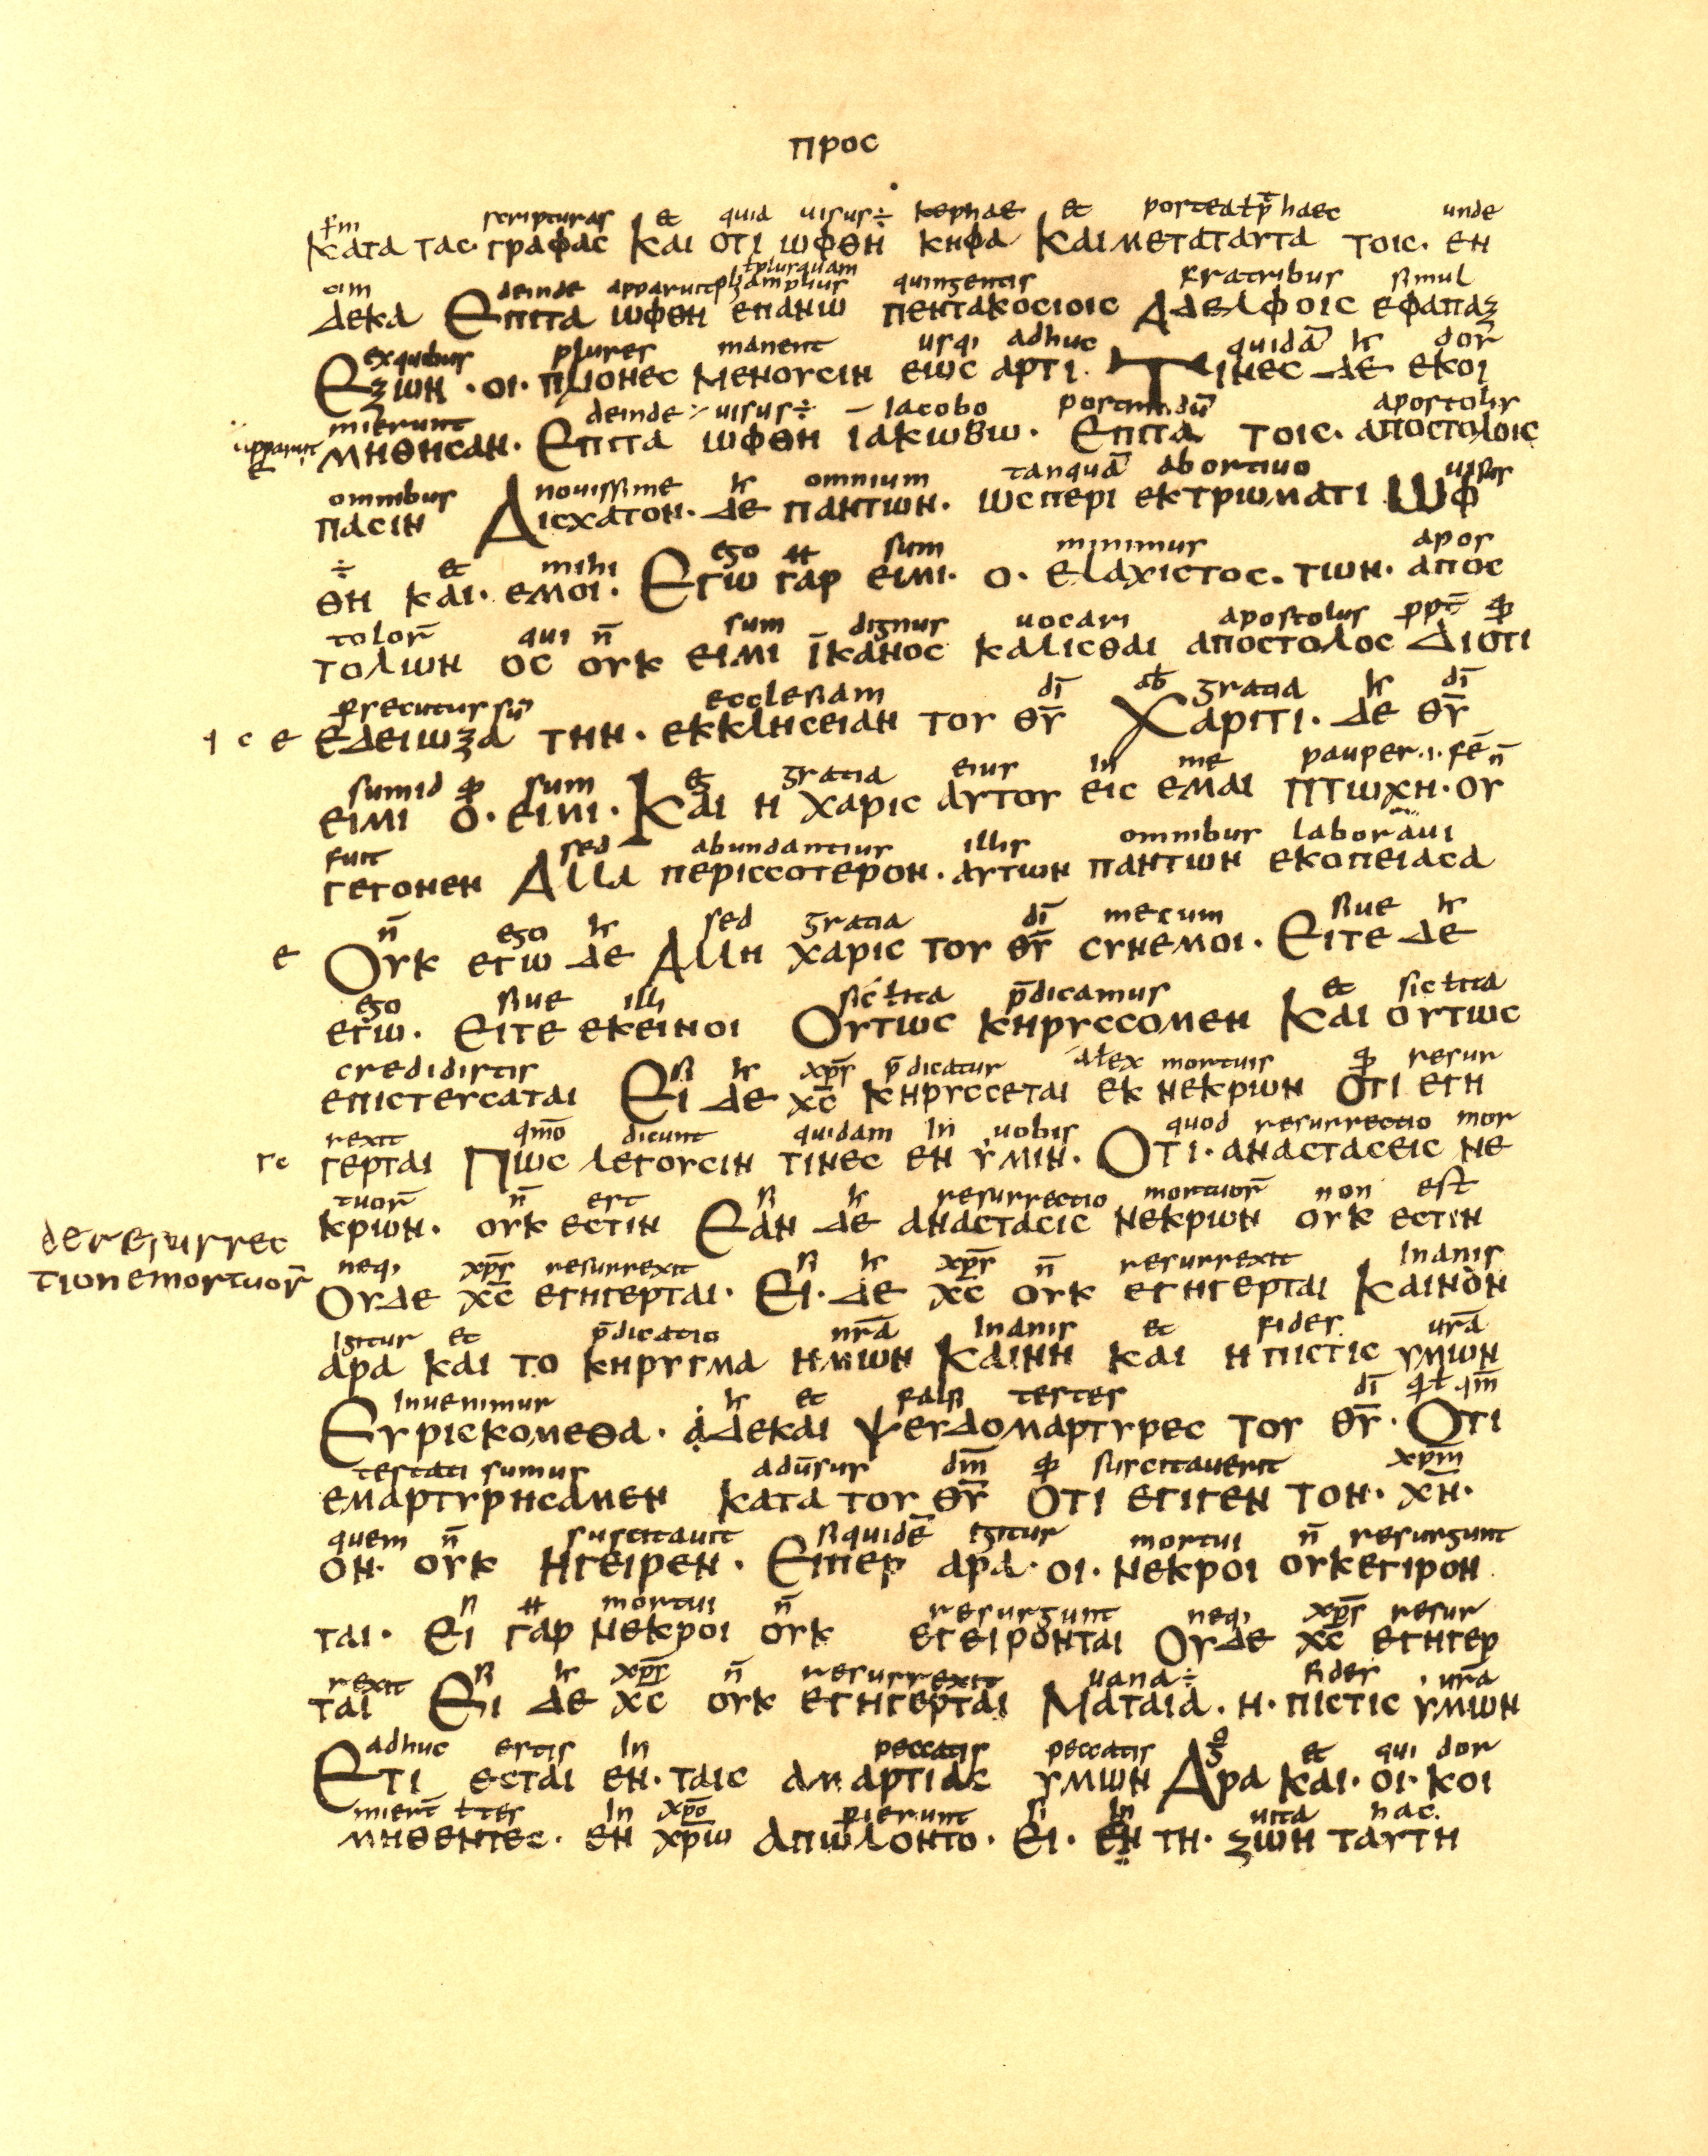 προс
scripturas et quid uisus÷ kephae et postea ł p̄ haec unde
κατα τας· γραφας Και οτι ωφθη κηφα Και μετα ταυτα τοις· εν
cim deinde apparuit quingentis fratribus simul
δεκα Επιτα ωφθη επανω πεντακοσιοις Αδελφοις εφαπαξ
ex quibus plures manent usq; adhuc quidā hr dor̄
Εξων · οι· πλιονες Μενουσιν εως αρτι· Τινες δε εκοι
mierunt deinde uisus÷ Iacobo apostolis
μηθησαν· Επιτα ωφθη ιακωβω· Επιτα τοις· αποστολοις
omnibus nouissime hr omnium tanquā abortiuo uisus
πασιν Αισχατον· δε παντων· ωσπερι εκτριωματι Ωφ
÷ et mihi ego sum minimus apos
θη και· εμοι· Εγω γαρ ειμι· ο· ελαχιστος· των· απος
tolor̄ qui n̄ sum dignus uocari apostolus ppt̄
τολων ος ουκ ειμι ικανος καλισθαι αποστολος Διοτι
persecutus sū ecclesiam dī ab gratia hr dī
εδειωξα την· εκκλησειαν του θ̅υ̅ Χαριτι· δε θ̅υ̅
sum id sum et gratia eius in me pauper ·i· n̄
ειμι ο· ειμι· Και η χαρις αυτου εις εμαι πτωχη· ου
fuit sed abundantius illis omnibus laboraui
γεγονεν Αλλα περισσοτερον· αυτων παντων εκοπειασα
n̄ ego hr sed gratia dī mecum siue hr
ε Ουκ εγω δε Αλλη χαρις του θ̅υ̅ συνεμοι· Ειτε δε
ego siue illi sic ł ita p̄dicamus et sic ł ita
εγω· Ειτε εκεινοι Ουτως κηρυσσομεν Και ουτως
credidistis si hr xp̄s p̄dicatur ex mortuis resur
επιστευσαται Ει δε χ̅ς̅ κηρυσσεται εκ νεκρων οτι εγη
rexit qm̄o dicunt quidam in uobis quod resurrectio mor
γερται Πως λεγουσιν τινες εν υμιν· Οτι· αναστασεις νε
tuor̄ n̄ est si hr resurrectio mortuor̄ non est
κρων· ουκ εστιν Εαν δε αναστασις νεκρων ουκ εστιν
de resurrec
tione mortuor̄
neq; xp̄s resurrexit si hr xp̄s n̄ resurrexit Inanis
Ουδε χ̅ς̅ εγηγερται· Ει· δε χ̅ς̅ ουκ εγηγερται Καινον
Igitur et p̄dicatio nr̄a Inanis et fides ur̄a
αρα και το κηρυγμα ημων Καινη και η πιστις υμων
Inuenimur hr et falsi testes dī
Ευρισκομεθα· αδεκαι ψευδομαρτυρες του θ̅υ̅· Οτι
testati sumus adūsus dm̄ suscitauerit xpm̄
εμαρτυρησαμεν κατα του θ̅υ̅ οτι εγιγεν τον· χ̅ν̅·
quem n̄ suscitauit siquidē igitur mortui n̄ resurgunt
ον· ουκ ηγειρεν· Ειπερ αρα· οι· νεκροι ουκεγιρον
si mortui n̄ resurgunt neq; xp̄s resur
ται· Ει γαρ νεκροι ουκ εγειρονται Ουδε χ̅ς̅ εγηγερ
rexit si hr xp̄s n̄ resurrexit uana÷ fides ur̄a
ται Ει δε χς ουκ εγηγερται Ματαια· η· πιστις υμων
adhuc estis In peccatis peccatis et qui dor
Ετι εσται εν· ταις αμαρτιας υμων Αρα και· οι· κοι
miert̄ ł tes In xp̄o perierunt si in uita hac·
μηθεντες· εν χρ̅ω απωλοντο· ει· εν τη· ζων ταυτη